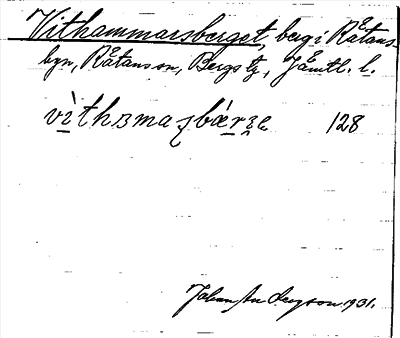 Vithammarsberget, berg i Råtans-
byn, Råtans sn, Bergs tg, Jämtl. l.
vìthɜmaʂbærʒe 128
Johan Andersson 1931.